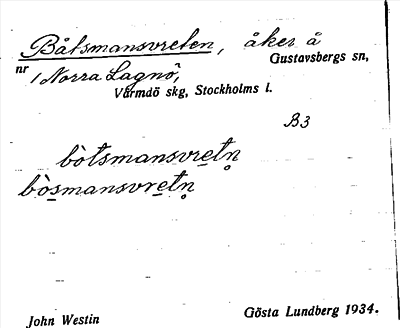 Båtsmansvreten, åker å
Gustavsbergs sn,
nr 1 Norra Lagnö,
Värmdö skg, Stockholms l.
B3
bòtsmansvretn̥
bòsmansvretn̥
John Westin
Gösta Lundberg 1934.